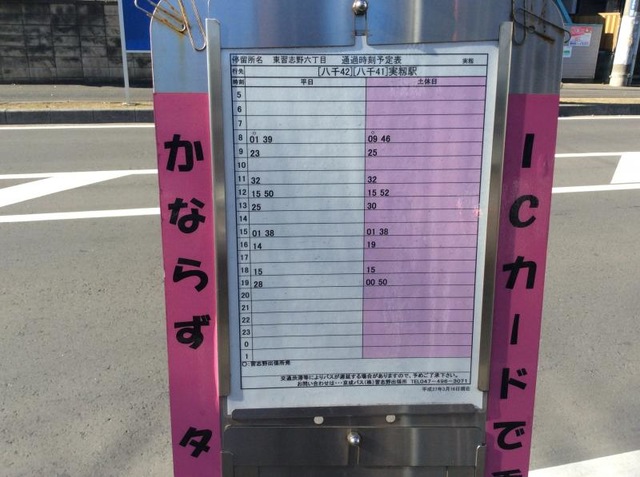 停留所名 東習志野六丁目 通過時刻予定表 実籾
行先 [八千42][八千41]実籾駅
時刻 平日 土休日
5
6
7
8 ○01 39 ○09 46
9 23 25
10
11 32 32
12 15 50 15 52
13 25 30
14
15 01 38 01 38
16 14 19
17
18 15 15
19 28 00 50
20
21
22
23
0
1
○:習志野出張所発
交通渋滞等によりバスが遅延する場合がありますので、予めご了承下さい。
お問い合わせは…京成バス(株)習志野出張所 TEL047-496-3071
平成27年3月16日現在
かならず タ
ICカードで